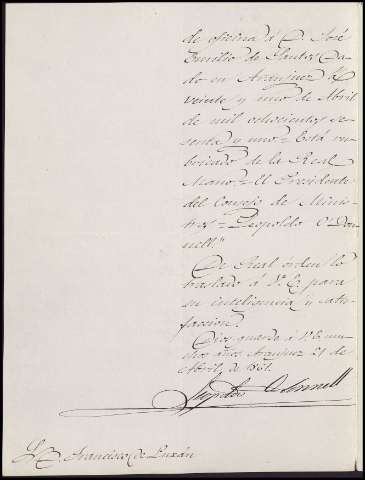 de oficina á D. José
Emilio de Santos Da-
do en Aranjuez á
veinte y uno de Abril
de mil ochocientos se-
senta y uno = Está ru-
bricado de la Real
Mano = El Presidente
del Consejo de Minis-
tros = Leopoldo O'Don-
nell."
De Real órden lo
traslado á V. E. para
su inteligencia y satis-
faccion.
Dios guarde á V. E. mu-
chos años. Aranjuez 21 de
Abril de 1861.
Leopoldo O'Donnell
D. Francisco de Luxán